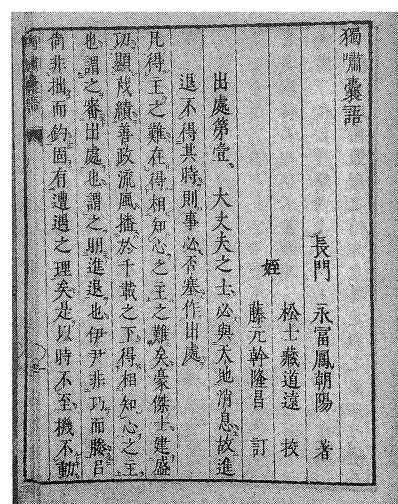 獨嘯囊語
長門 永冨鳳朝陽 著
松士藏道遠 挍
姪
藤元幹隆昌 訂
出處第壹、大丈夫之士、必與天地消息、故進
退不得其時、則事必否塞、作出處、
凡得王之難、在得相知心之主之難矣、豪傑士建盛
功、顯茂績、善政流風、播於千載之下、得相知心之主
也、謂之審出處也、謂之明進退也、伊尹非巧而勝、呂
尚非拙而釣、固有遭遇之理矣、是以時不至、機不動、